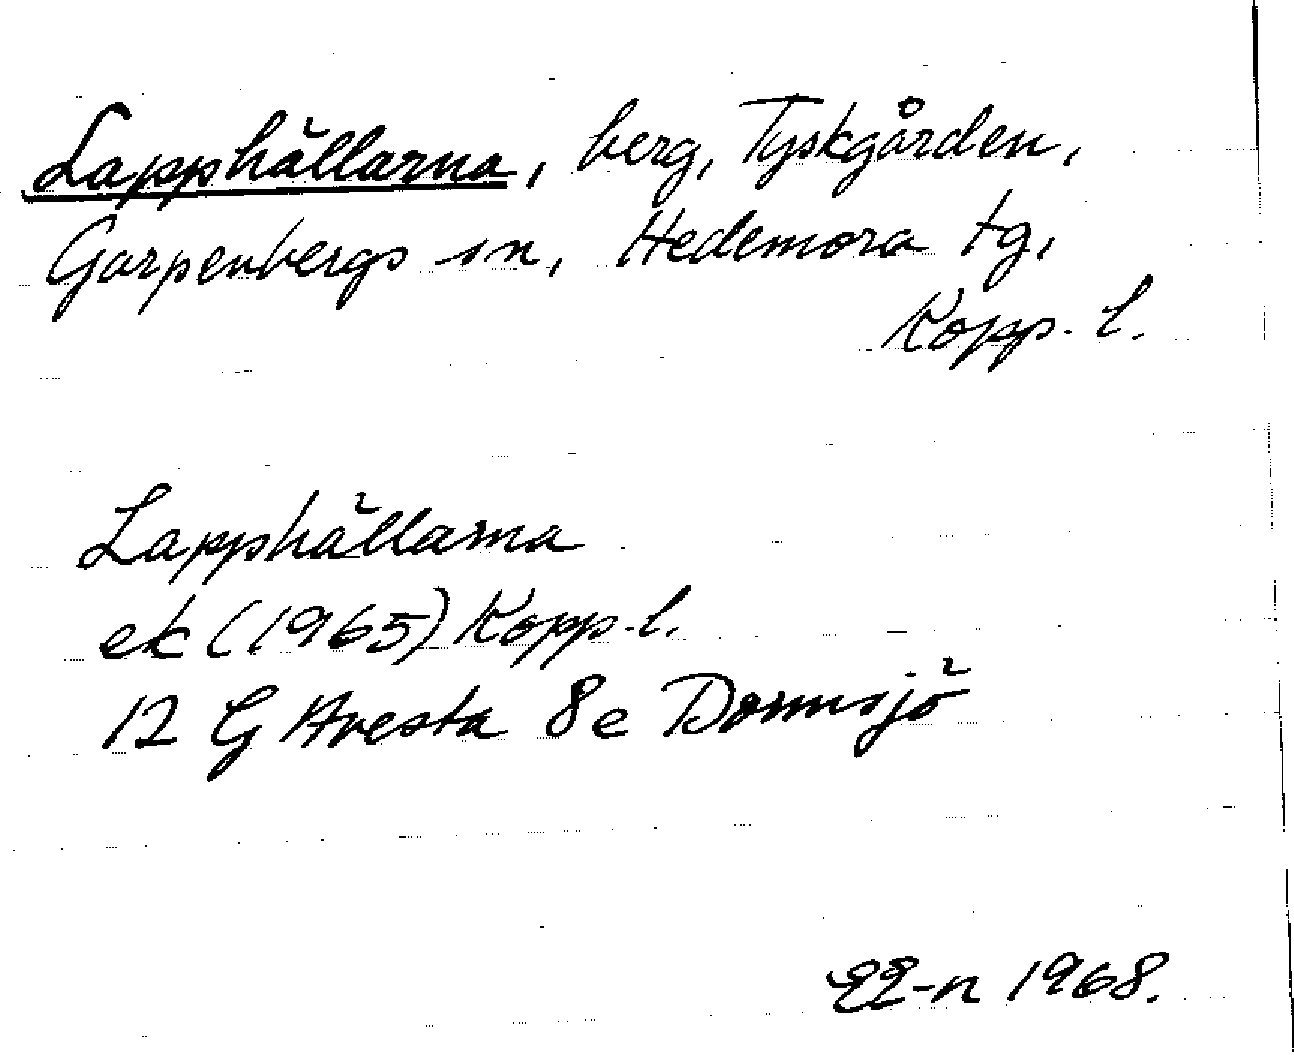 Lapphällarna, berg, Tyskgården,
Garpenbergs sn, Hedemora tg,
Kopp. l.
Lapphällarna
ek (1965) Kopp. l.
12 G Avesta 8e Dormsjö
-n 1968.